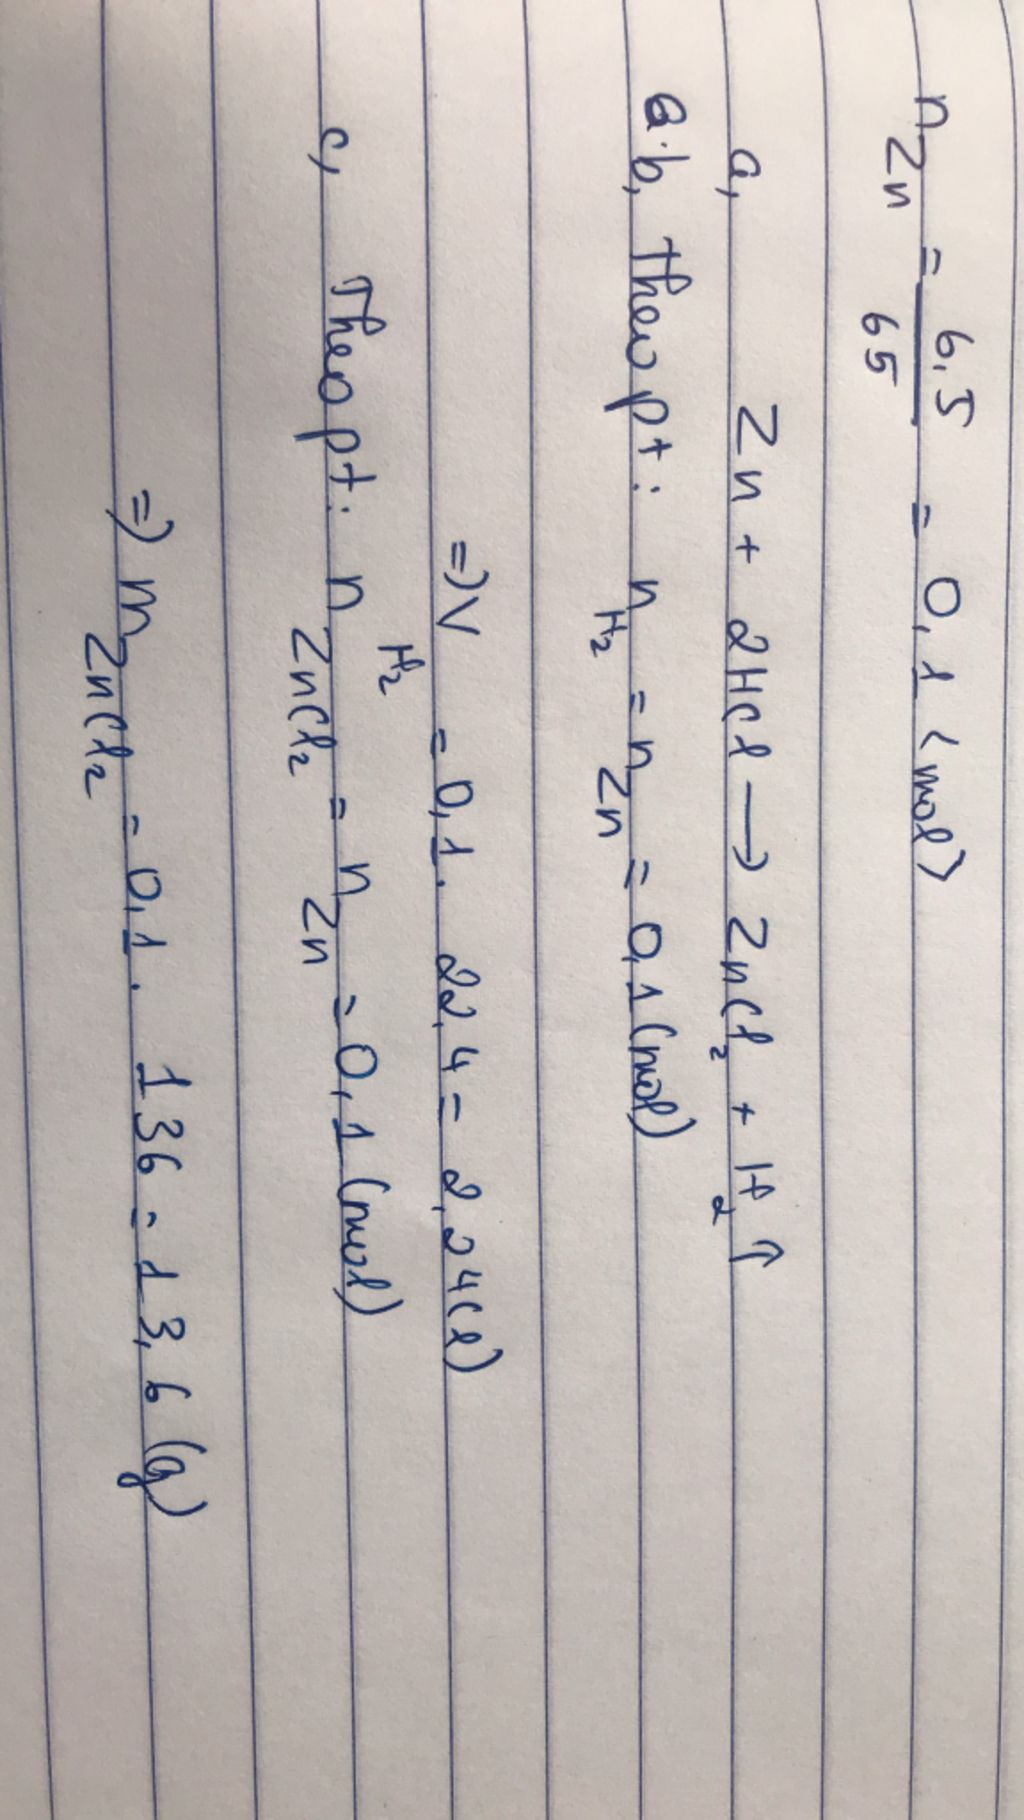 n Zn = 6,5 / 65 = 0,1 (mol)
a, Zn + 2HCl → ZnCl2 + H2 ↑
b, Theo pt: n H2 = n Zn = 0,1 (mol)
=> V H2 = 0,1 . 22,4 = 2,24 (l)
c, Theo pt: n ZnCl2 = n Zn = 0,1 (mol)
=> m ZnCl2 = 0,1 . 136 = 13,6 (g)